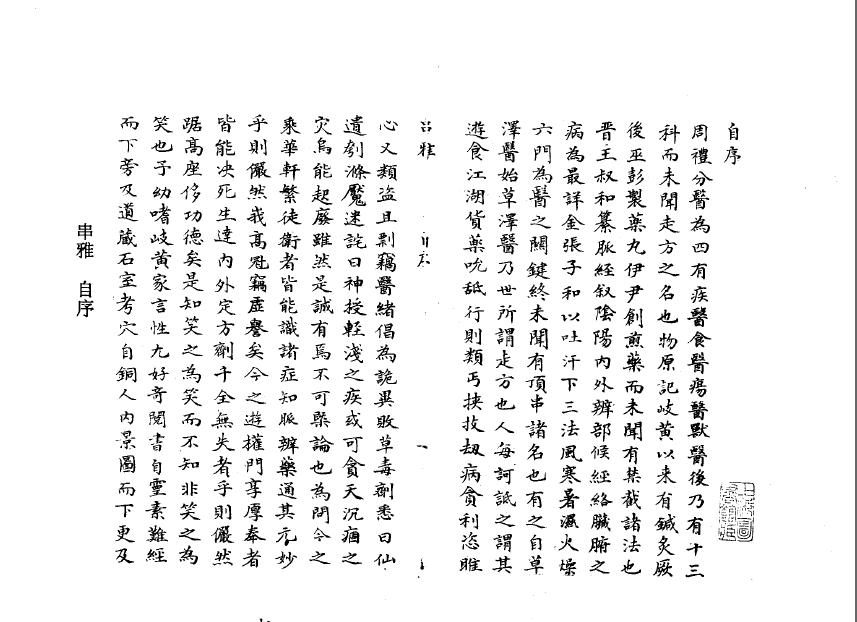 自序
周禮分醫為四有疾醫食醫瘍醫獸醫後乃有十三
科而未聞走方之名也物原記岐黃以來有鍼灸厥
後巫彭製藥丸伊尹創煎藥而未聞有禁截諸法也
晉王叔和纂脈經叙陰陽內外辨部候經絡臟腑之
病為最詳金張子和以吐汗下三法風寒暑濕火燥
六門為醫之關鍵終未聞有頂串諸名也有之自草
澤醫始草澤醫乃世所謂走方也人每訶詆之謂其
遊食江湖貨藥吮舐行則類丐挾技刼病貪利恣睢
心又類盜且剽竊醫緒倡為詭異敗草毒劑悉曰仙
遺刳滌魘迷詫曰神授輕淺之疾或可貪天沉痼之
灾烏能起廢雖然是誠有焉不可槩論也為問今之
乘華軒繁徒衛者皆能識諸症知脈辨藥通其元妙
乎則儼然峩高冠竊虛譽矣今之遊權門享厚奉者
皆能决死生達內外定方劑十全無失者乎則儼然
踞高座侈功德矣是知笑之為笑而不知非笑之為
笑也予幼嗜岐黃家言性尤好奇閱書自靈素難經
而下旁及道藏石室考穴自銅人內景圖而下更及
串雅 自序